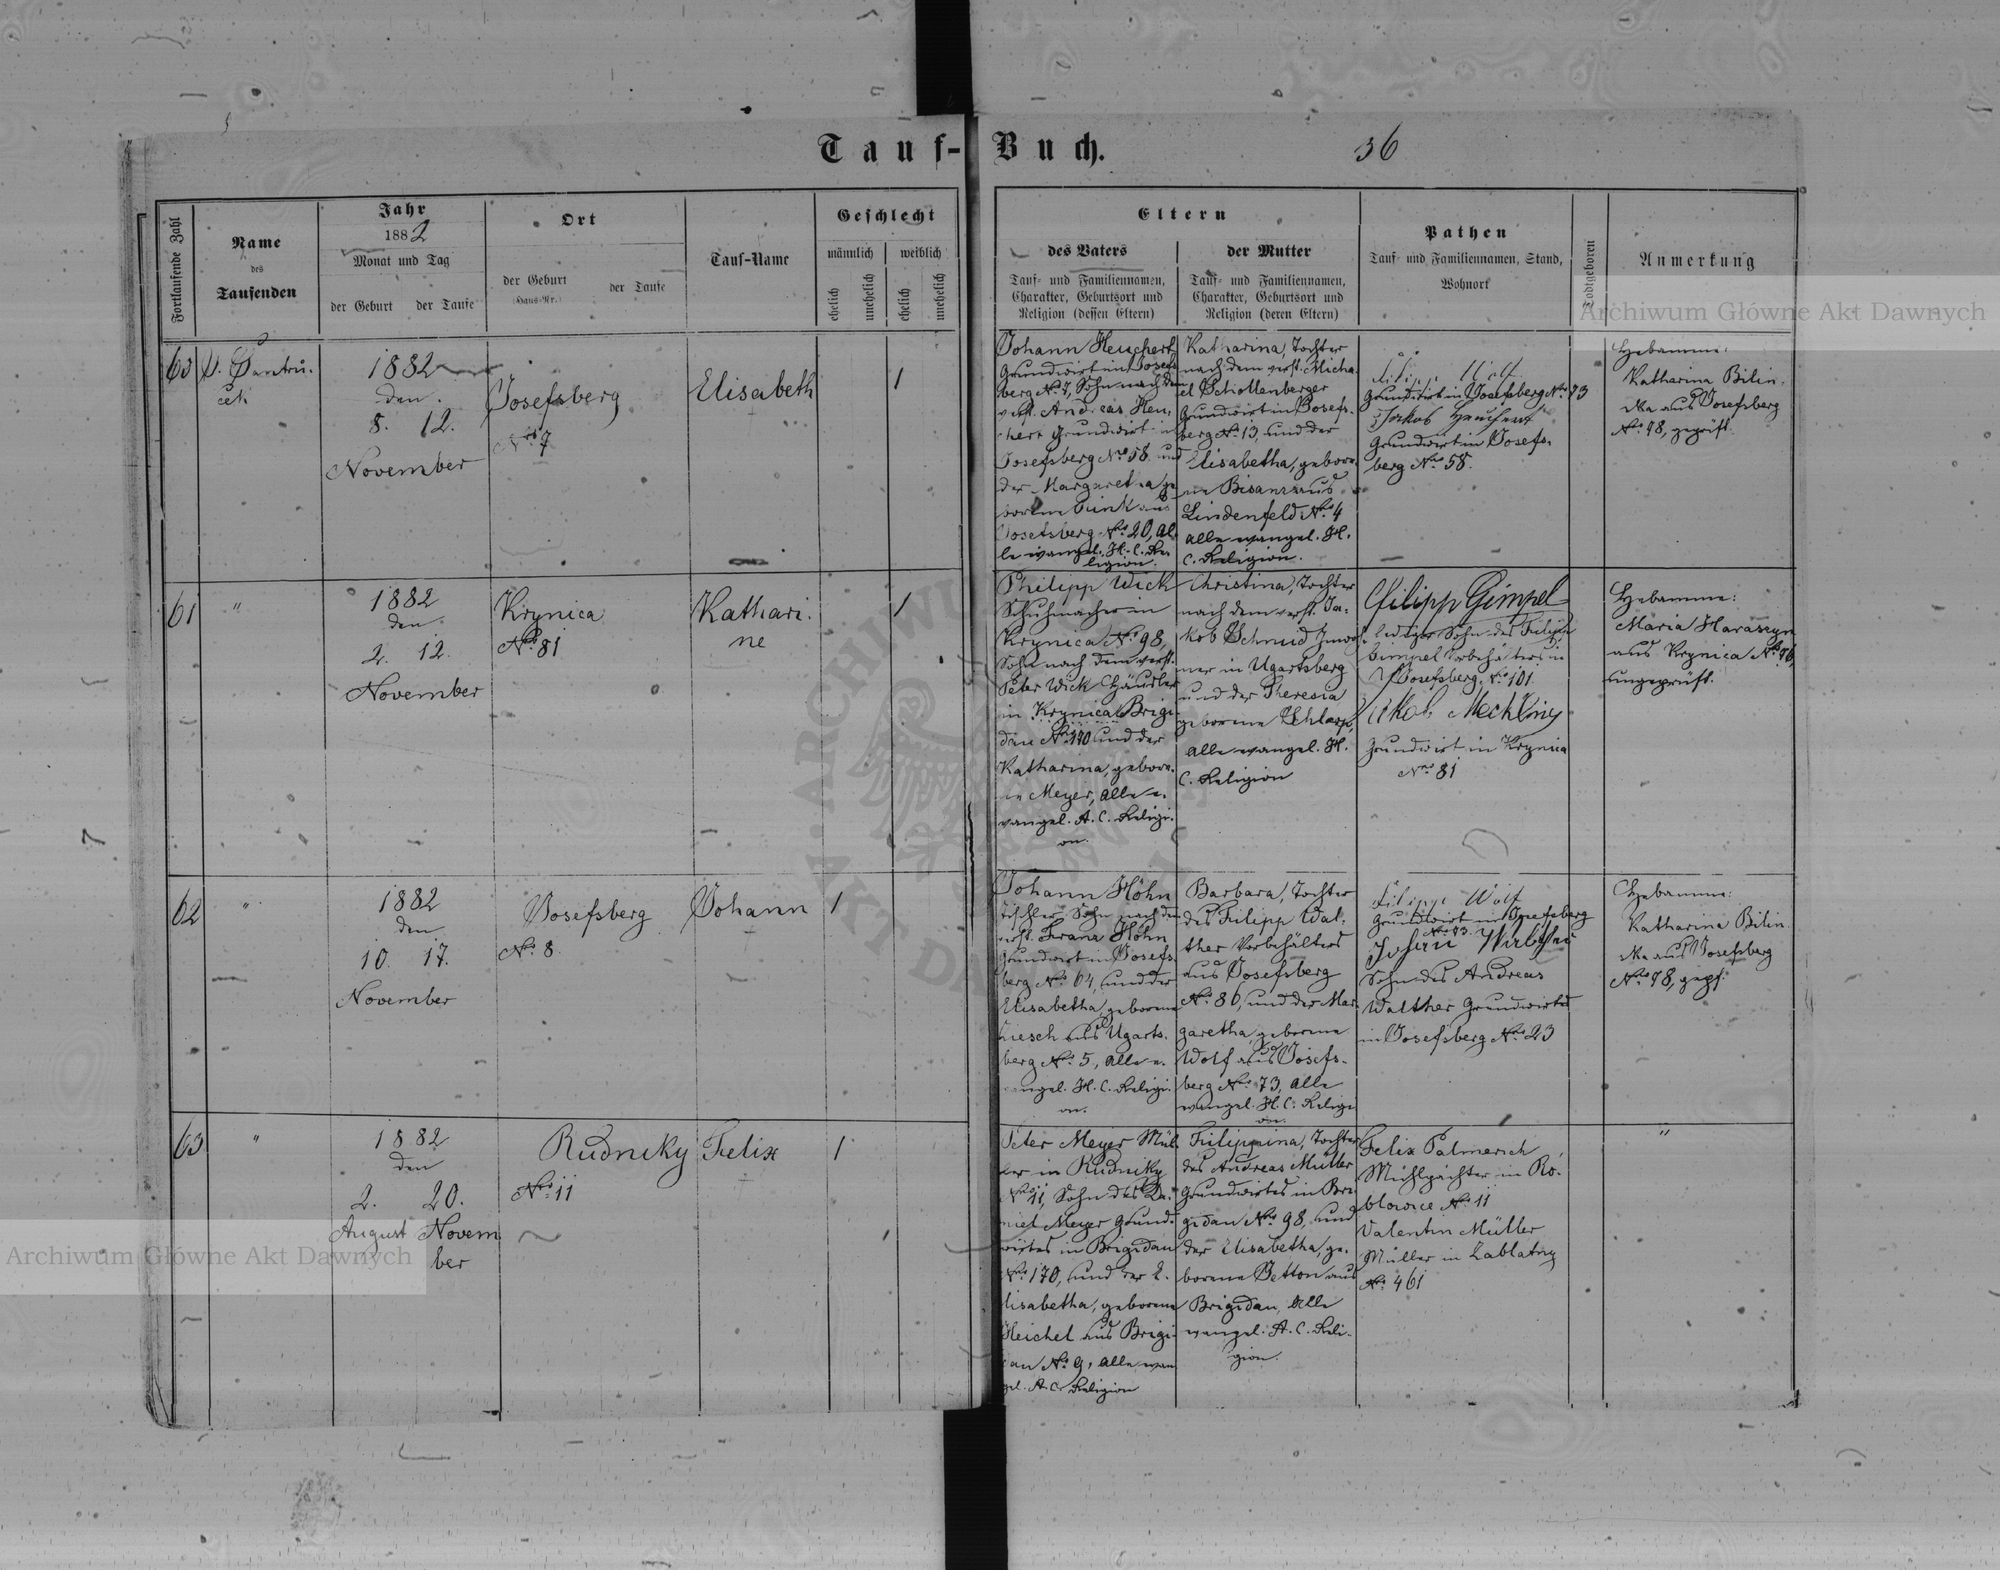 Tauf-Buch.
36
Fortlaufende Zahl
Name
des
Taufenden
Jahr
1882
Monat und Tag
der Geburt
der Taufe
Ort
der Geburt
(Haus-Nr.)
der Taufe
Tauf-Name
Geschlecht
männlich
weiblich
ehelich
unehelich
ehelich
unehelich
Eltern
des Vaters
Tauf- und Familiennamen,
Charakter, Geburtsort und
Religion (dessen Eltern)
der Mutter
Tauf- und Familiennamen,
Charakter, Geburtsort und
Religion (deren Eltern)
Pathen
Tauf- und Familiennamen, Stand,
Wohnort
Todtgeboren
Anmerkung
1882
den
8. 12.
November
Josefsberg
Nro 7
Elisabeth
1
Johann Heuchert
Grundwirt in Josefs
berg No 7, Sohn nach dem
verst. Andreas Heu,
chert Grundwirt in
Josefsberg Nro 58 und
der Margaretha ge
borene aus
Josefsberg Nro 20, al,
le evangel. H. C. Re
ligion.
Katharina, Tochter
nach dem verst. Micha
el Schollenberger
Grundwirt in Josefs-
berg No 13, und der
Elisabetha, gebore
ne Bisanz aus
Lindenfeld No 4
alle evangel. H.
C. Religion.
Filipp Wolf
Grundwirt in Josefsberg No 73
Jakob Heuchert
Grundwirt in Josefs-
berg No 58.
Hebamme:
Katharina Bilin,
ska aus Josefsberg
No 78, geprüft.
61
"
1882
den
2. 12.
November
Krynica
No 81
Kathari-
ne
1
Philipp Wick
Schuhmacher in
Krynica No 98,
Sohn nach dem verst.
Peter Wick Häusler
in Krynica Brigi-
dau No 170 und der
Katharina, gebore-
ne Meyer, alle e-
vangel. A. C. Religi-
on.
Christina, Tochter
nach dem verst. Ja-
kob Schmid Inwoh-
ner in Ugartsberg
und der Theresia
geborene
alle evangel. H.
C. Religion
Filipp Gimpel
lediger Sohn des Filipp
Gimpel Vorbehälters in
Josefsberg, No 101
Jakob Mechling
Grundwirt in Krynica
No 81
Hebamme:
Maria Harasym
aus Krynica No 76,
ungeprüft.
62
"
1882
den
10. 17.
November
Josefsberg
No 8
Johann
1
Johann Höhn
Tischler, Sohn nach dem
verst. Franz Höhn
Grundwirt in Josefs
berg No 64, und der
Elisabetha, geborene
aus Ugarts-
berg No 5, alle e-
vangel. H. C. Religi-
on.
Barbara, Tochter
des Filipp Wal-
ther Vorbehälters
aus Josefsberg
No 86, und der Mar-
garetha, geborene
Wolf aus Josefs-
berg No 73, alle
evangel. H. C. Religi
on.
Filipp Wolf
Grundwirt in Josefsberg
No 73.
Johann
Sohn des Andreas
Walther Grundwirtes
in Josefsberg No 23
Hebamme:
Katharina Bilin
ska aus Josefsberg
No 78, gepf:
63
"
1882
den
2. 20.
August Novem
ber
Rudniky
Nro 11
Felix
1
Peter Meyer Mül
ler in Rudniky
Nro 11, Sohn des Da-
niel Meyer Grund-
wirtes in Brigidau
No 170, und der E-
lisabetha, geborene
Reichel aus Brigi-
dau No 9, alle evan
gel. A. C. Religion
Filippina, Tochter
des Andreas Müller
Grundwirtes in Bri
gidau No 98, und
der Elisabetha, ge-
borene aus
Brigidau, alle
evangel. A. C. Reli-
gion.
Felix Palmersch
Mühlpächter in Ro-
blowice No 11
Valentin Müller
Müller in Zablatny
No 461
"
Archiwum Główne Akt Dawnych
Archiwum Główne Akt Dawnych